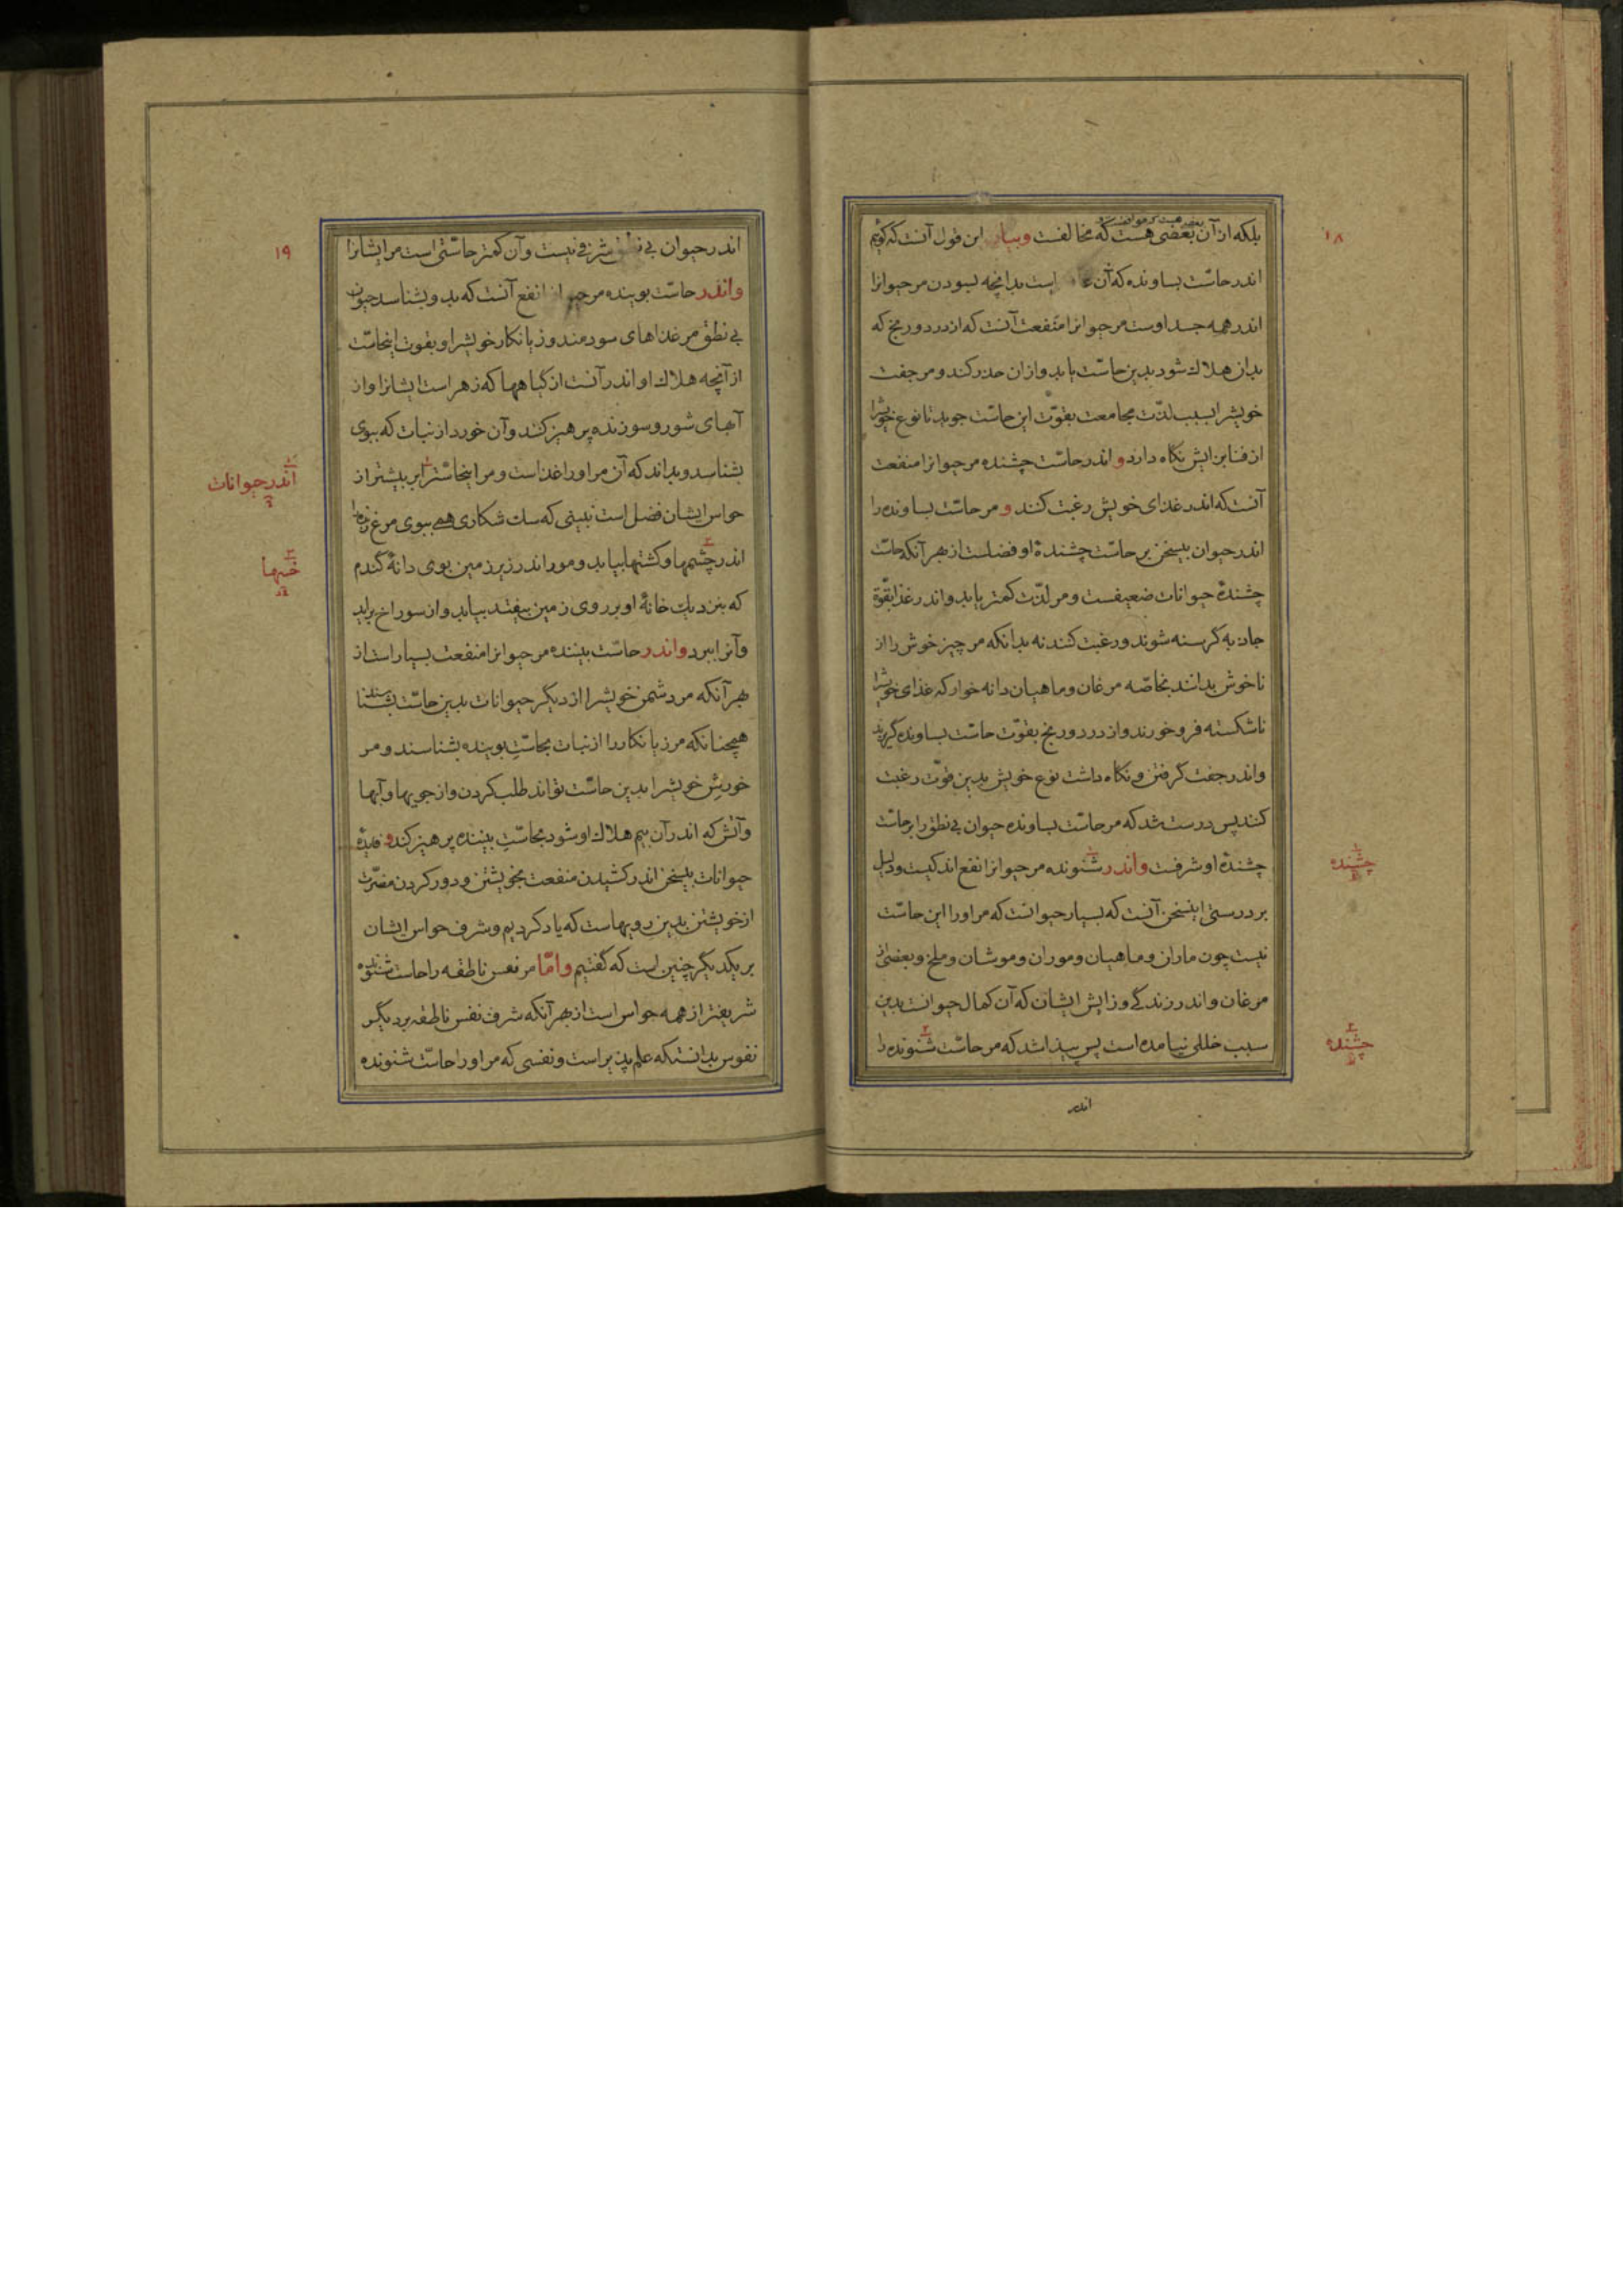 ۱۸
بلکه از آن بعضی هست که مخالفست وبیان این قول آنست که گوئیم
اندر حاسّت بساونده که آن است بدانچه بسودن مر حیوانرا
اندر همه جسد اوست مر حیوانرا منفعت آنست که از درد و رنج که
بدان هلاک شود بدین حاسّت یابد و ازان حذر کند و مر جفت
خویشرا بسبب لذّت مجامعت بقوّت این حاسّت جوید تا نوع خویشرا
از فنا بزایش نگاه دارد و اندر حاسّت چشنده مر حیوانرا منفعت
آنست که اندر غذای خویش رغبت کنند و مر حاسّت بساونده را
اندر حیوان بیسخن بر حاسّت چشندهٔ او فضلست از بهر آنکه حاسّت
چشندهٔ حیوانات ضعیفست و مر لذّت کمتر یابد و اندر غذا بقوّة
جاذبه گرسنه شوند و رغبت کنند نه بدانکه مر چیز خوش را از
ناخوش بدانند بخاصّه مرغان و ماهیان دانه خوار که غذای خویشرا
ناشکسته فرو خورند و از درد و رنج بقوّت حاسّت بساونده گریزند
و اندر جفت گرفتن و نگاه داشت نوع خویش بدین قوّت رغبت
کنند پس درست شد که مر حاسّت بساونده حیوان بی نطق را بر حاسّت
چشندهٔ او شرفست واندر شنونده مر حیوانرا نفع اندکیست و دلیل
چشنده
بر درستی اینسخن آنست که بسیار حیوانست که مر او را این حاسّت
نیست چون ماران و ماهیان و موران و موشان و ملخ و بعضی از
مرغان و اندر زندگی و زایش ایشان که آن کمال حیوانست بدین
سبب خللی نیامده است پس پیدا شد که مر حاسّت شنونده را
چشنده
اندر
۱۹
اندر حیوان بی نطق شرفی نیست و آن کمتر حاسّتی است مر ایشانرا
واندر حاسّت بوینده مر حیوانرا نفع آنست که بدو بشناسد حیوان
بی نطق مر غذاهای سودمند و زیانکار خویشرا و بقوت اینحاسّت
از آنچه هلاک او اندر آنست از گیاهها که زهر است ایشانرا و از
آبهای شور و سوزنده پرهیز کند و آن خورد از نبات که ببوی
بشناسد و بداند که آن مر او را غذاست و مر اینحاسّترا بر بیشتر از
اندر حیوانات
حواس ایشان فضل است نبینی که سک شکاری همی ببوی مرغ زنده را
اندر چشمها و کشتها بیابد و مور اندر زیر زمین بوی دانهٔ گندم
خیها
که بنزدیک خانهٔ او بر روی زمین بیفتد بیابد و از سوراخ برآید
و آنرا ببرد واندر حاسّت بیننده مر حیوانرا منفعت بسیار است از
بهر آنکه مر دشمن خویشرا از دیگر حیوانات بدین حاسّت بشناسند
همچنانکه مر زیانکار را از نبات بحاسّت بوینده بشناسند و مر
خورش خویشرا بدین حاسّت تواند طلب کردن و از جویها و آبها
و آتش که اندر آن بیم هلاک او شود بحاسّت بیننده پرهیز کند و فایدهٔ
حیوانات بیسخن اندر کشیدن منفعت بخویشتن و دور کردن مضرّت
از خویشتن بدین رویهاست که یاد کردیم و شرف حواس ایشان
بر یکدیگر چنین است که گفتیم وامّا مر نفس ناطقه را حاسّت شنونده
شریفتر از همه حواس است از بهر آنکه شرف نفس ناطقه بر دیگر
نفوس بدانستکه علم پذیر است و نفسی که مر او را حاسّت شنونده